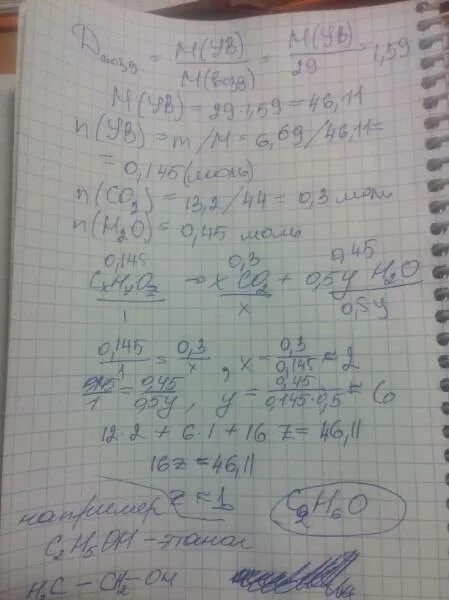 Dвозд = M(УВ)/M(возд) = M(УВ)/29 = 1,59
M(УВ) = 29·1,59 = 46,11
n(УВ) = m/M = 6,69/46,11=
= 0,145(моль)
n(CO₂) = 13,2/44 = 0,3 моль
n(H₂O) = 0,45 моль
0,145 0,3 0,45
CxHyOz → x CO₂ + 0,5y H₂O
1 x 0,5y
0,145/1 = 0,3/x , x = 0,3/0,145 ≈ 2
0,145/1 = 0,45/0,5y , y = 0,45/0,145·0,5 ≈ 6
12·2 + 6·1 + 16 z = 46,11
16z = 46,11
z ≈ 1
C₂H₆O
например
C₂H₅OH – этанол
H₃C – CH₂ – OH